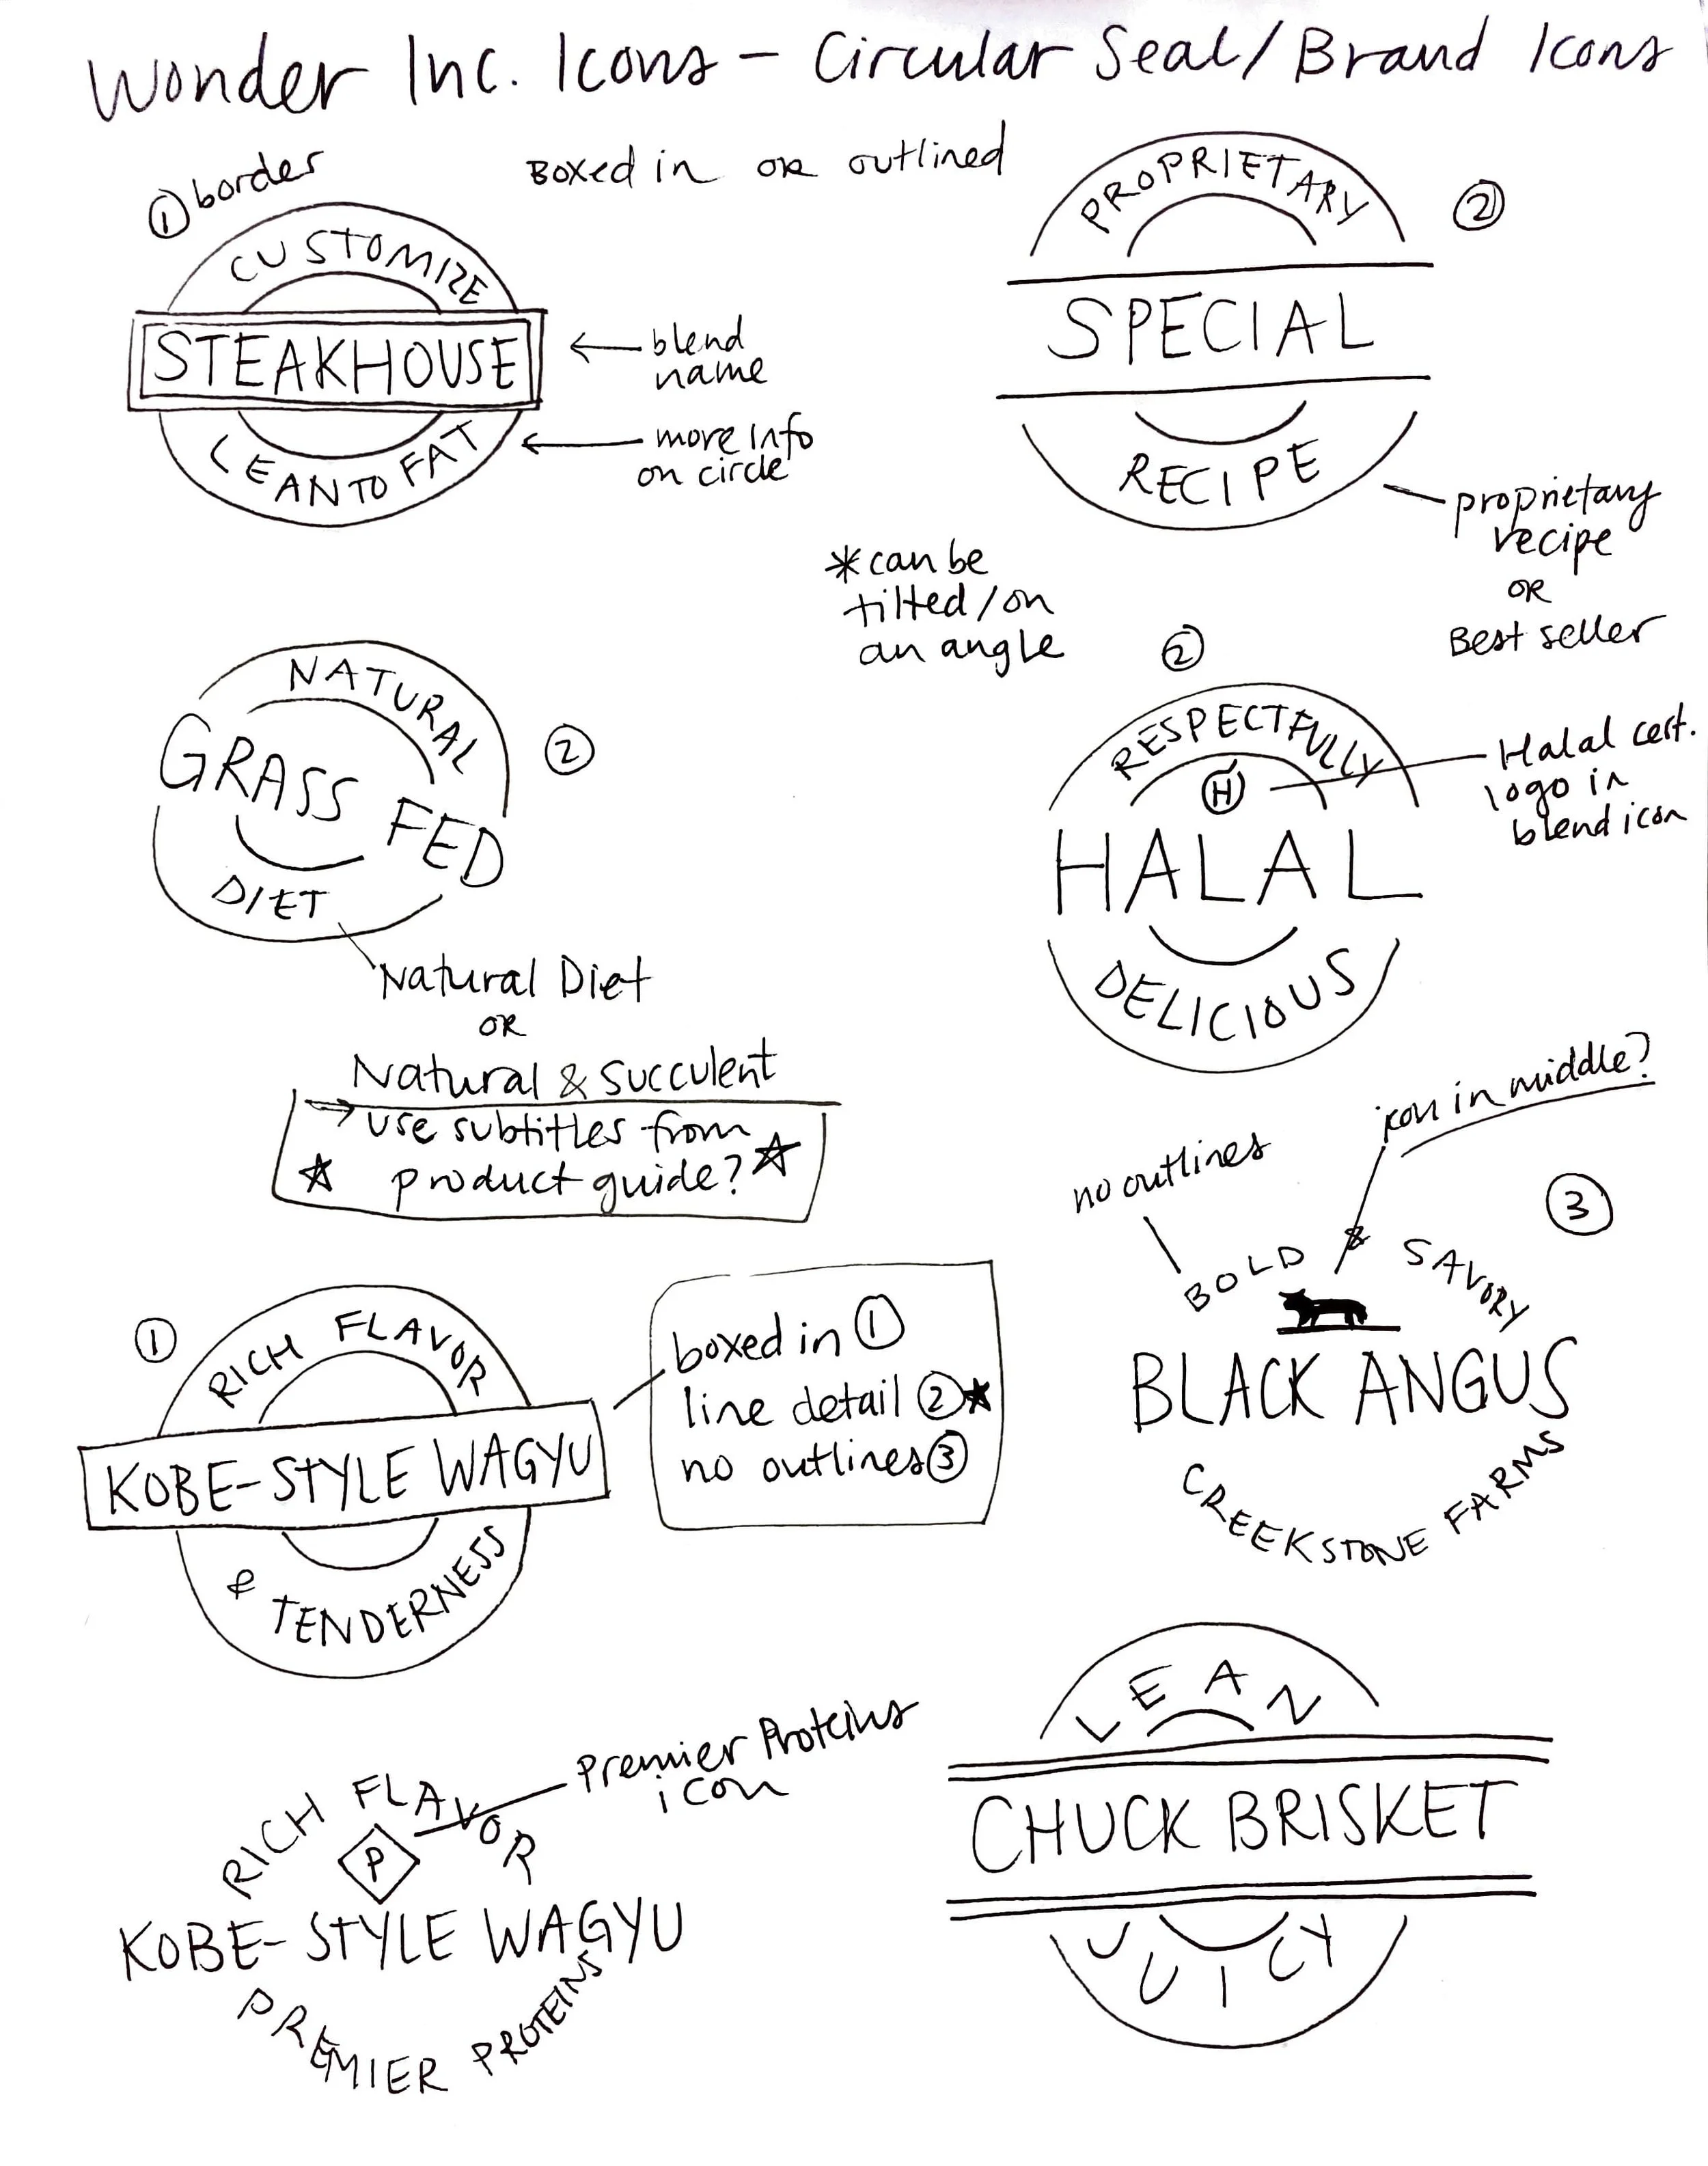 Wonder Inc. Icons - Circular Seal/Brand Icons
① border
Boxed in OR outlined
CUSTOMIZE
STEAKHOUSE
LEAN TO FAT
← blend
name
← more info
on circle
②
PROPRIETARY
SPECIAL
RECIPE
proprietary
recipe
OR
Best seller
*can be
tilted/on
an angle
NATURAL
GRASS FED
DIET
②
Natural Diet
OR
Natural & Succulent
→ use subtitles from
☆ product guide? ☆
②
RESPECTFULLY
H
HALAL
DELICIOUS
Halal cert.
logo in
blend icon
icon in middle?
no outlines
③
BOLD & SAVORY
BLACK ANGUS
CREEKSTONE FARMS
①
RICH FLAVOR
KOBE-STYLE WAGYU
& TENDERNESS
boxed in ①
line detail ②★
no outlines ③
Premier Proteins
icon
RICH FLAVOR
P
KOBE-STYLE WAGYU
PREMIER PROTEINS
LEAN
CHUCK BRISKET
JUICY